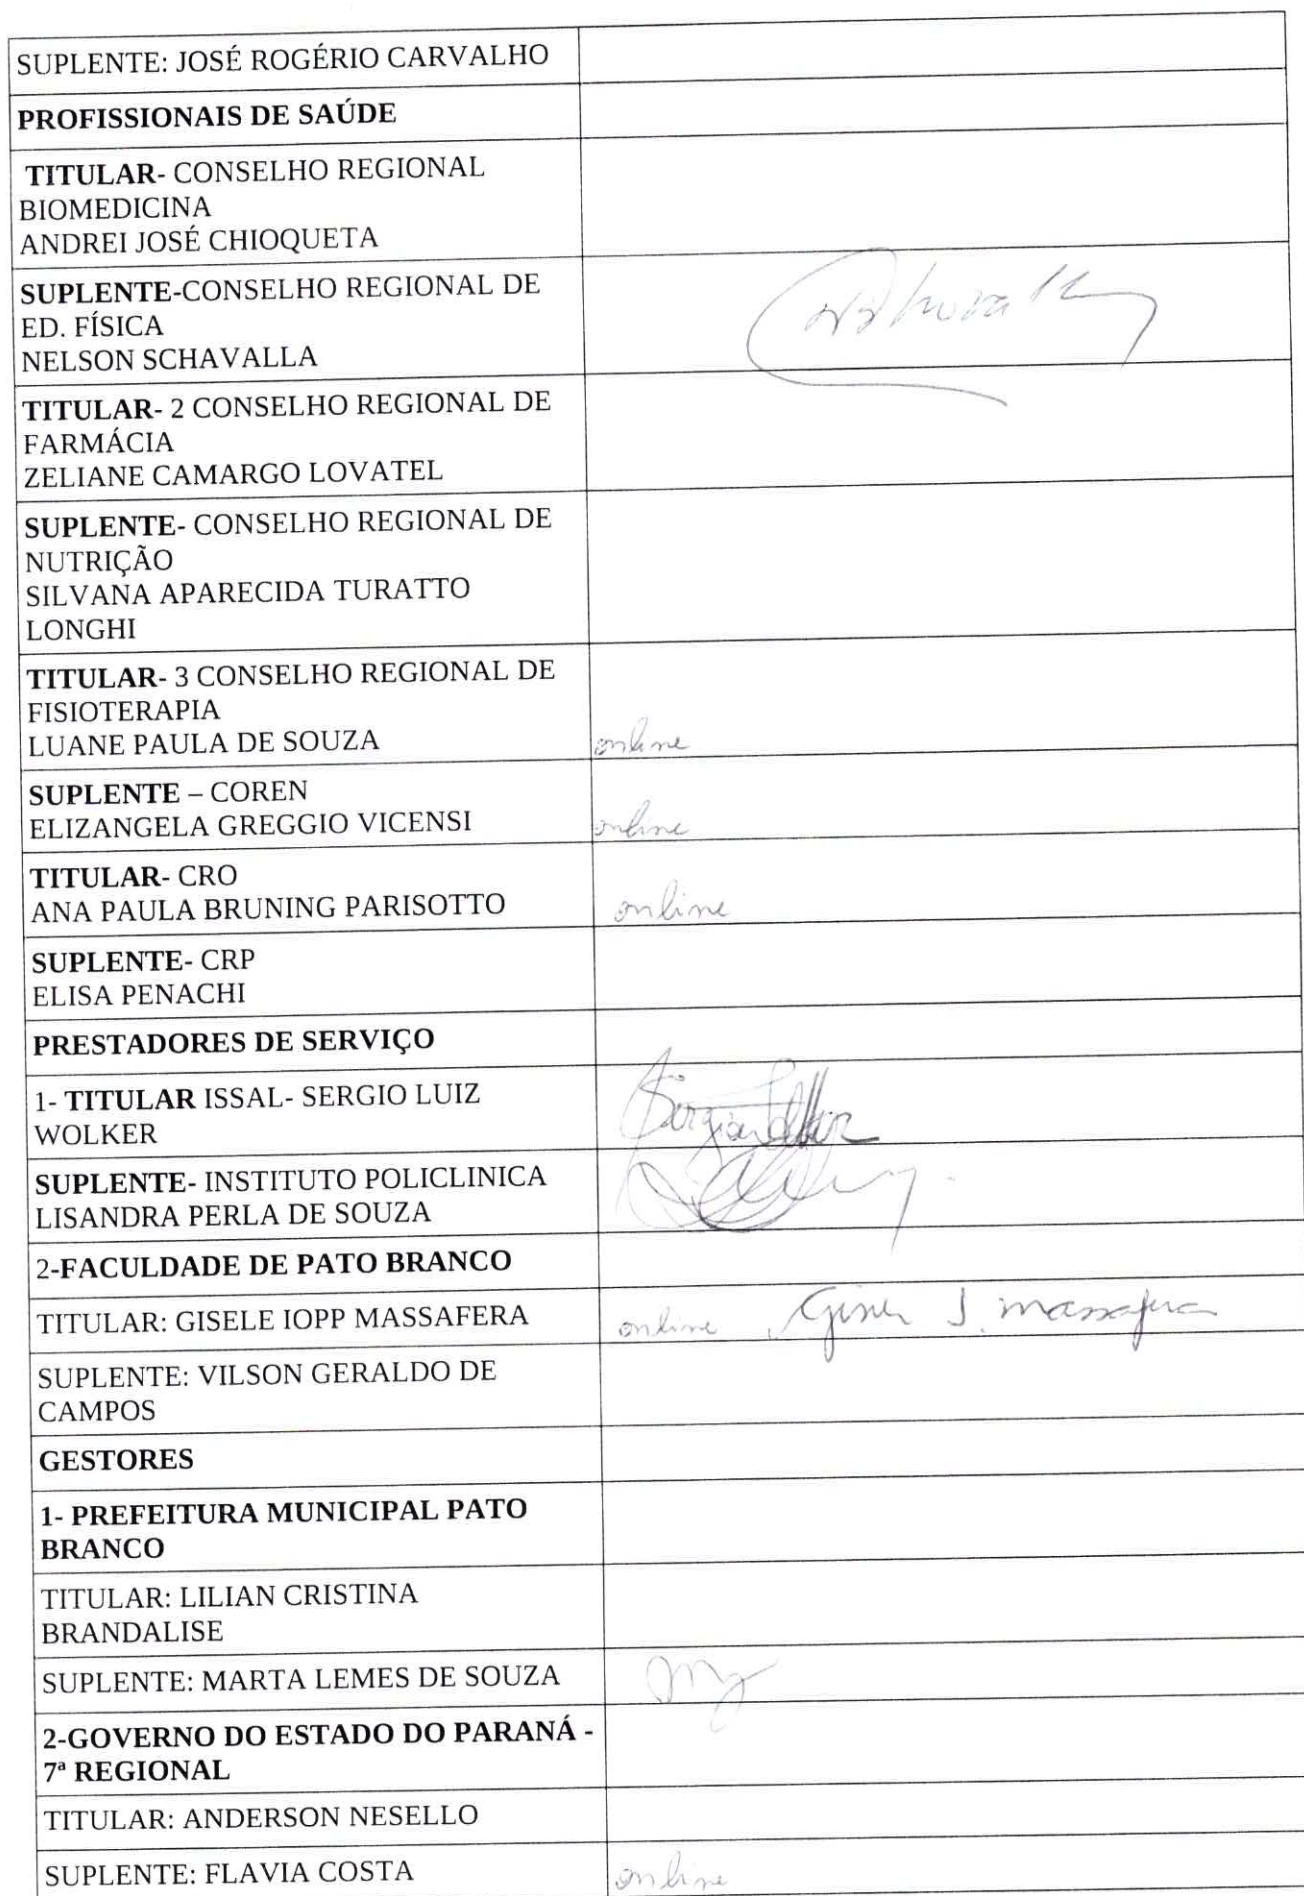 SUPLENTE: JOSÉ ROGÉRIO CARVALHO
PROFISSIONAIS DE SAÚDE
TITULAR- CONSELHO REGIONAL
BIOMEDICINA
ANDREI JOSÉ CHIOQUETA
SUPLENTE-CONSELHO REGIONAL DE
ED. FÍSICA
NELSON SCHAVALLA
TITULAR- 2 CONSELHO REGIONAL DE
FARMÁCIA
ZELIANE CAMARGO LOVATEL
SUPLENTE- CONSELHO REGIONAL DE
NUTRIÇÃO
SILVANA APARECIDA TURATTO
LONGHI
TITULAR- 3 CONSELHO REGIONAL DE
FISIOTERAPIA
LUANE PAULA DE SOUZA online
SUPLENTE – COREN
ELIZANGELA GREGGIO VICENSI online
TITULAR- CRO
ANA PAULA BRUNING PARISOTTO online
SUPLENTE- CRP
ELISA PENACHI
PRESTADORES DE SERVIÇO
1- TITULAR ISSAL- SERGIO LUIZ
WOLKER
SUPLENTE- INSTITUTO POLICLINICA
LISANDRA PERLA DE SOUZA
2-FACULDADE DE PATO BRANCO
TITULAR: GISELE IOPP MASSAFERA online
SUPLENTE: VILSON GERALDO DE
CAMPOS
GESTORES
1- PREFEITURA MUNICIPAL PATO
BRANCO
TITULAR: LILIAN CRISTINA
BRANDALISE
SUPLENTE: MARTA LEMES DE SOUZA
2-GOVERNO DO ESTADO DO PARANÁ -
7ª REGIONAL
TITULAR: ANDERSON NESELLO
SUPLENTE: FLAVIA COSTA online